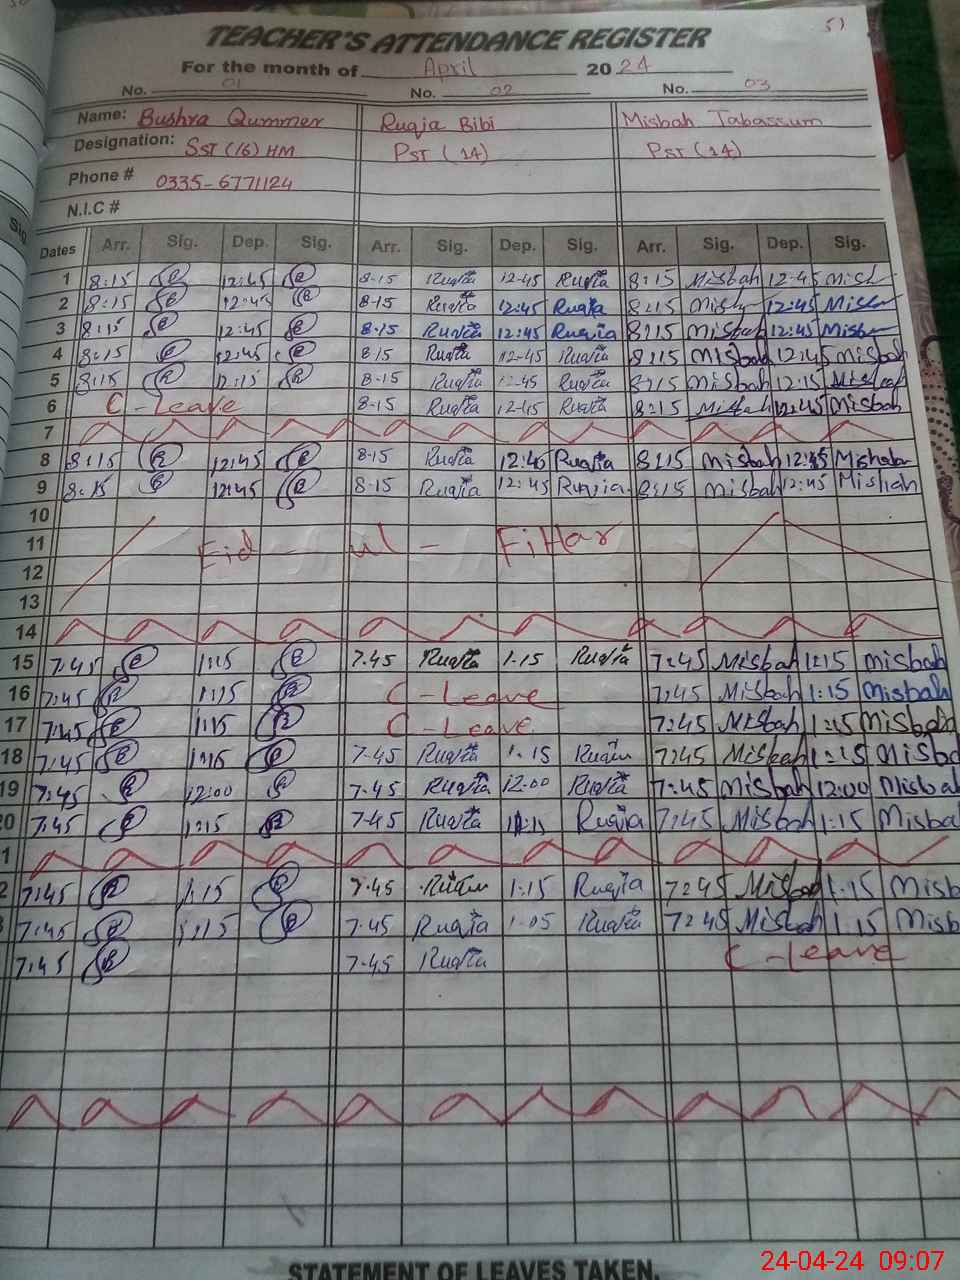 51
TEACHER'S ATTENDANCE REGISTER
For the month of April 2024
No. 01 No. 02 No. 03
Name: Bushra Qummer Ruqia Bibi Misbah Tabassum
Designation: SST (16) HM PST (14) PST (14)
Phone # 0335-6771124
N.I.C #
Sig.
Dates Arr. Sig. Dep. Sig. Arr. Sig. Dep. Sig. Arr. Sig. Dep. Sig.
1 8:15 12:45 8-15 Ruqia 12-45 Ruqia 8:15 Misbah 12:45 Misbah
2 8:15 12:45 8-15 Ruqia 12:45 Ruqia 8:15 Misbah 12:45 Misbah
3 8:15 12:45 8-15 Ruqia 12:45 Ruqia 8:15 Misbah 12:45 Misbah
4 8:15 12:45 8-15 Ruqia 12-45 Ruqia 8:15 Misbah 12:45 Misbah
5 8:15 12:15 8-15 Ruqia 12-45 Ruqia 8:15 Misbah 12:15 Misbah
6 C-Leave 8-15 Ruqia 12-45 Ruqia 8:15 Misbah 12:45 Misbah
7
8 8:15 12:45 8-15 Ruqia 12:45 Ruqia 8:15 Misbah 12:45 Misbah
9 8:15 12:45 8-15 Ruqia 12:45 Ruqia 8:15 Misbah 12:45 Misbah
10
11 Eid-ul-Fittar
12
13
14
15 7:45 1:15 7.45 Ruqia 1.15 Ruqia 7:45 Misbah 1:15 Misbah
16 7:45 1:15 C-Leave 7:45 Misbah 1:15 Misbah
17 7:45 1:15 C-Leave 7:45 Misbah 1:15 Misbah
18 7:45 1:15 7-45 Ruqia 1-15 Ruqia 7:45 Misbah 1:15 Misba
19 7:45 12:00 7-45 Ruqia 12:00 Ruqia 7:45 Misbah 12:00 Misbah
20 7:45 1:15 7-45 Ruqia 1:15 Ruqia 7:45 Misbah 1:15 Misba
1
2 7:45 1:15 7.45 Ruqia 1:15 Ruqia 7:45 Misbah 1:15 Misb
3 7:45 1:15 7.45 Ruqia 1-05 Ruqia 7:45 Misbah 1.15 Misb
7:45 7-45 Ruqia C-Leave
STATEMENT OF LEAVES TAKEN.
24-04-24 09:07